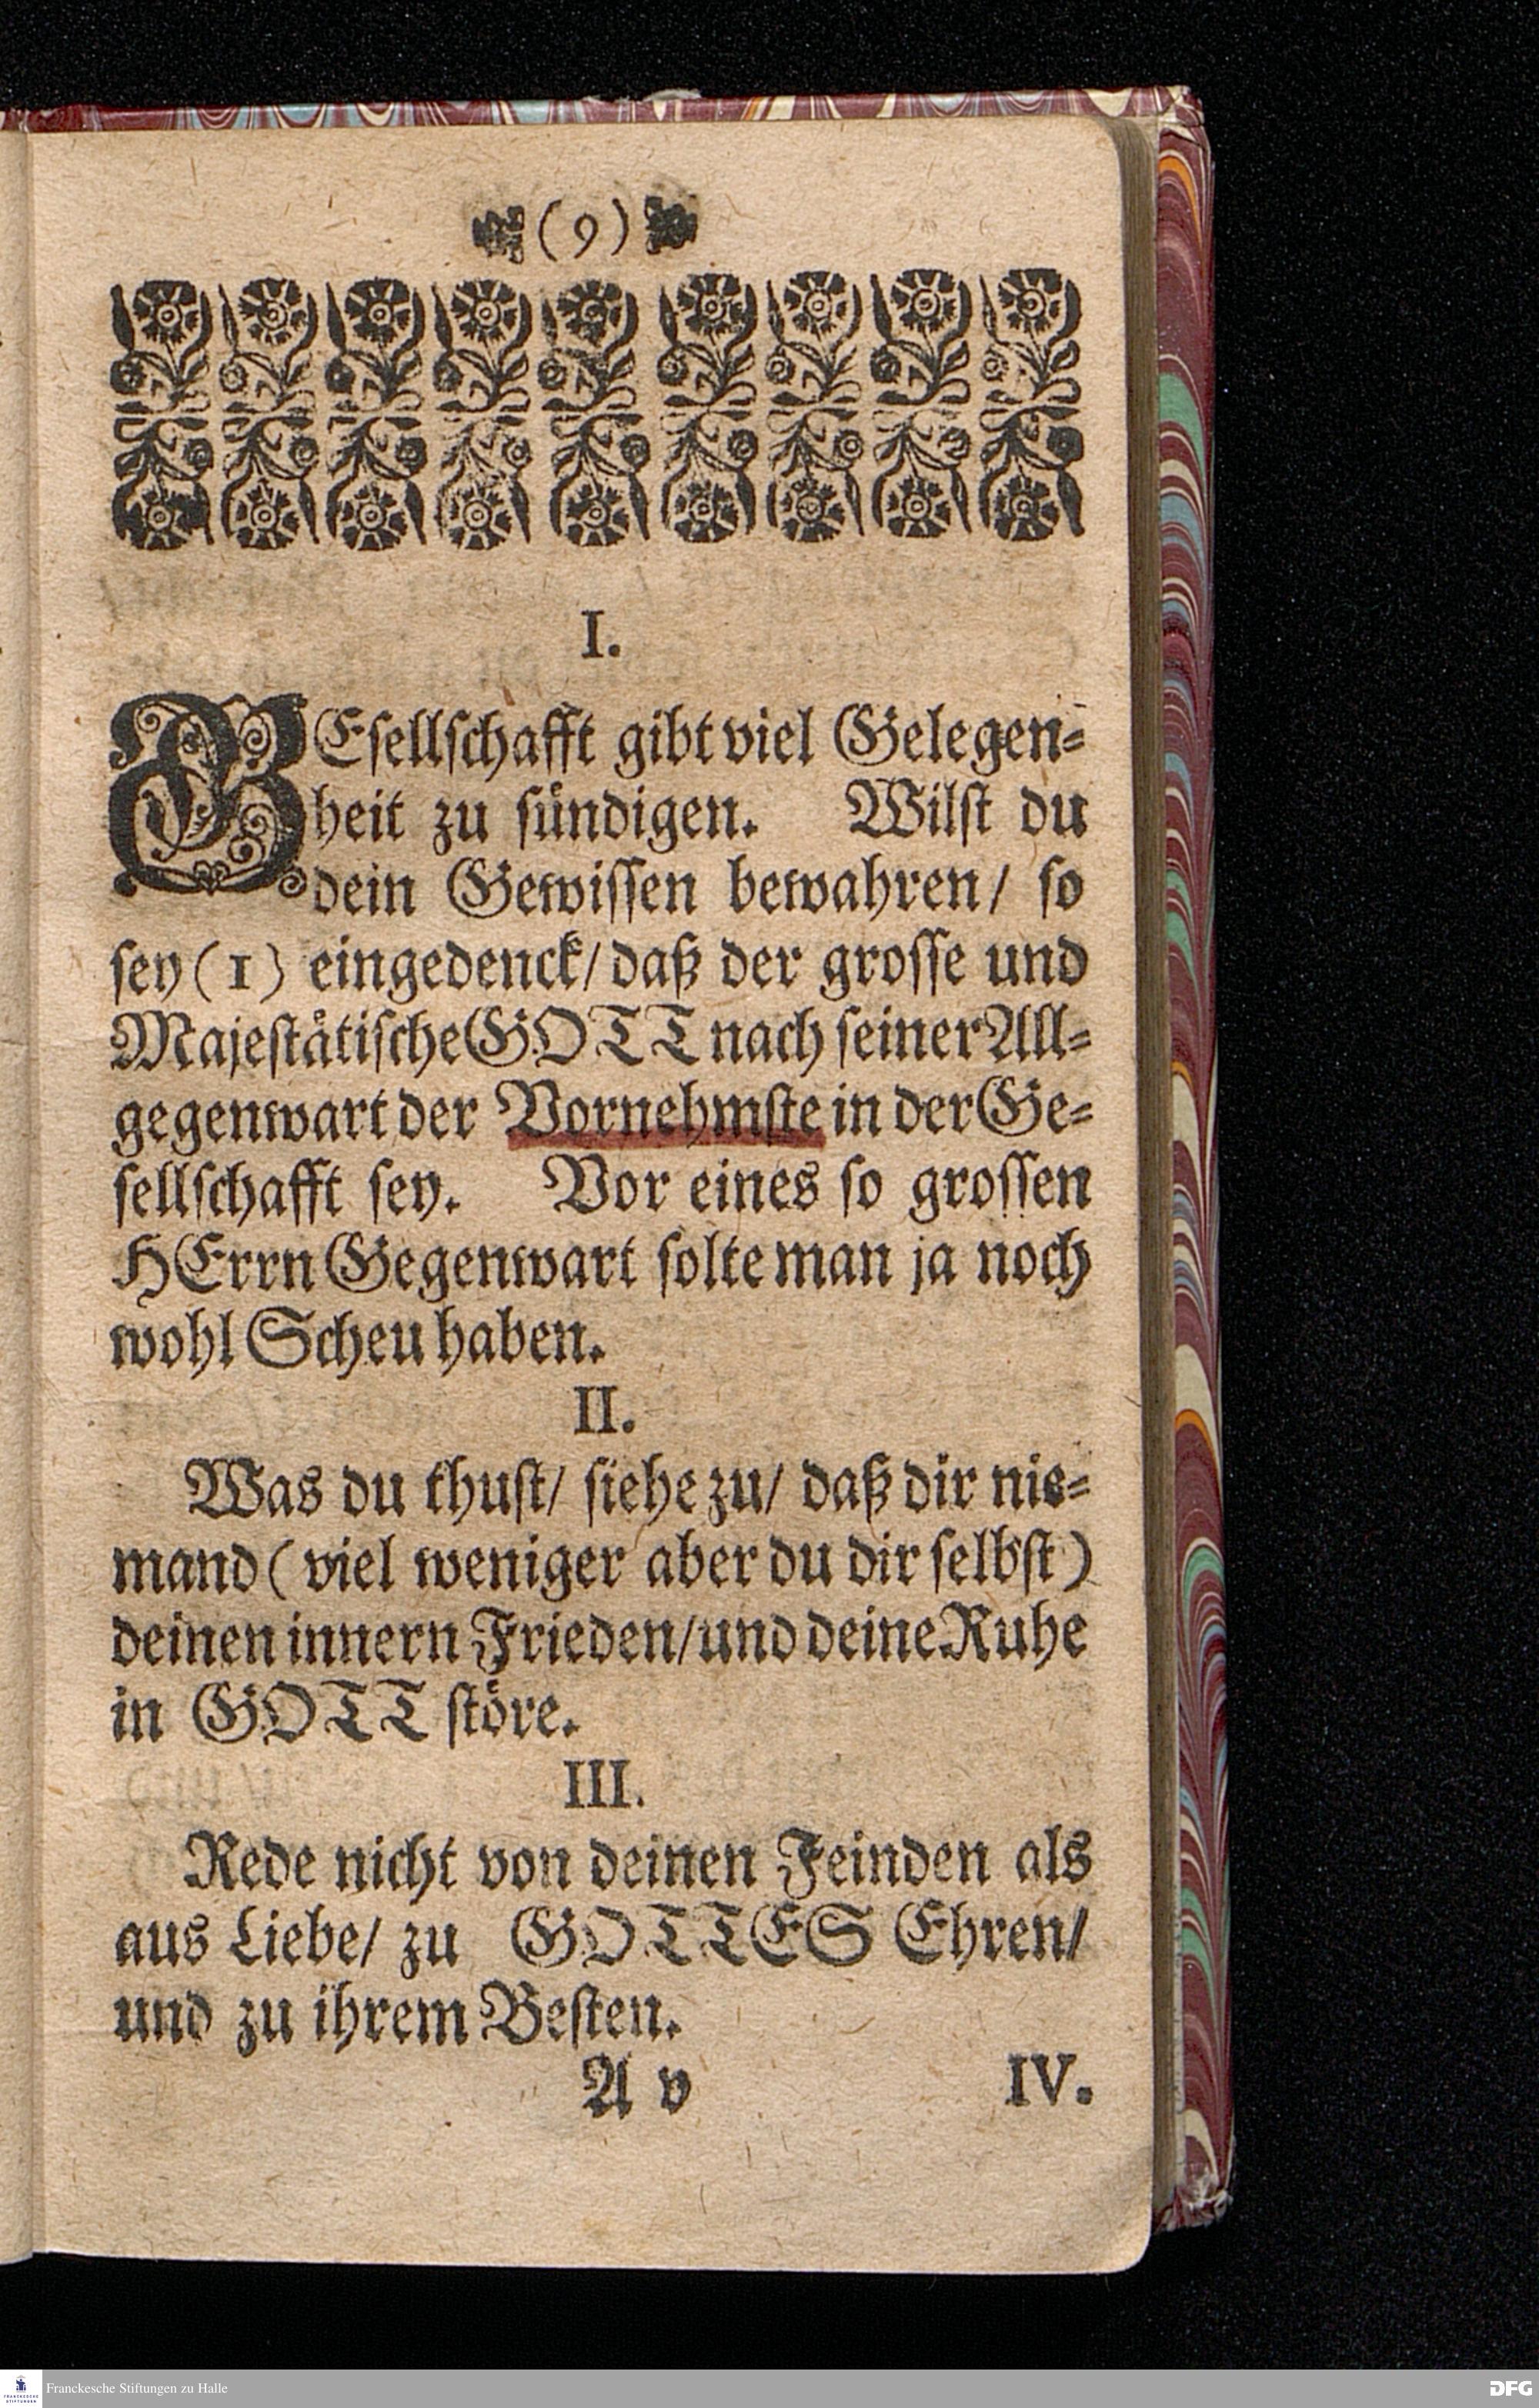 (9)
I.
GEsellschafft gibt viel Gelegen-
heit zu sündigen. Wilst du
dein Gewissen bewahren/ so
sey (1) eingedenck/ daß der grosse und
Majestätische GOTT nach seiner All-
gegenwart der Vornehmste in der Ge-
sellschafft sey. Vor eines so grossen
HErrn Gegenwart solte man ja noch
wohl Scheu haben.
II.
Was du thust/ siehe zu/ daß dir nie-
mand (viel weniger aber du dir selbst)
deinen innern Frieden/ und deine Ruhe
in GOTT störe.
III.
Rede nicht von deinen Feinden als
aus Liebe/ zu GOTTES Ehren/
und zu ihrem Besten.
A v IV.
FRANCKESCHE STIFTUNGEN
Franckesche Stiftungen zu Halle
DFG